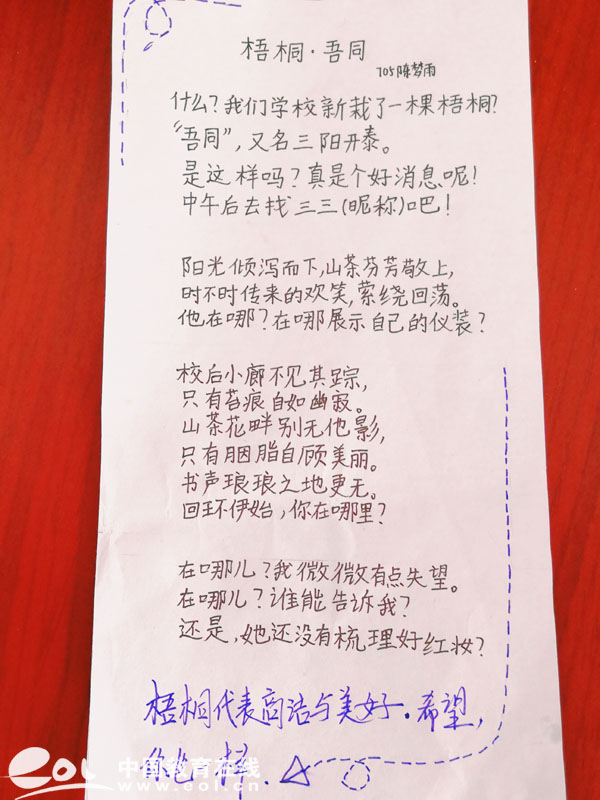 梧桐·吾同
705陈梦雨
什么?我们学校新栽了一棵梧桐?
"吾同",又名三阳开泰。
是这样吗?真是个好消息呢!
中午后去找三三(昵称)吧!
阳光倾泻而下,山茶芬芳敬上,
时不时传来的欢笑,萦绕回荡。
他在哪?在哪展示自己的仪装?
校后小廊不见其踪,
只有苔痕自如幽寂。
山茶花畔别无他影,
只有胭脂自顾美丽。
书声琅琅之地更无。
回环伊始,你在哪里?
在哪儿?我微微有点失望。
在哪儿?谁能告诉我?
还是,她还没有梳理好红妆?
梧桐代表高洁与美好.希望,
eol 中国教育在线
www.eol.cn